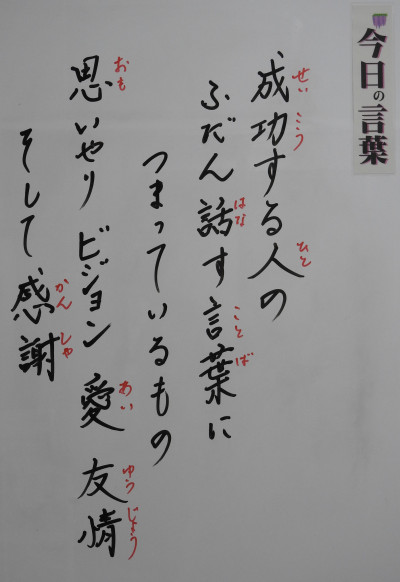 今日の言葉
成功する人の
せいこう ひと
ふだん話す言葉に
はな ことば
つまっているもの
思いやり ビジョン 愛 友情
おも あい ゆうじょう
そして感謝
かんしゃ